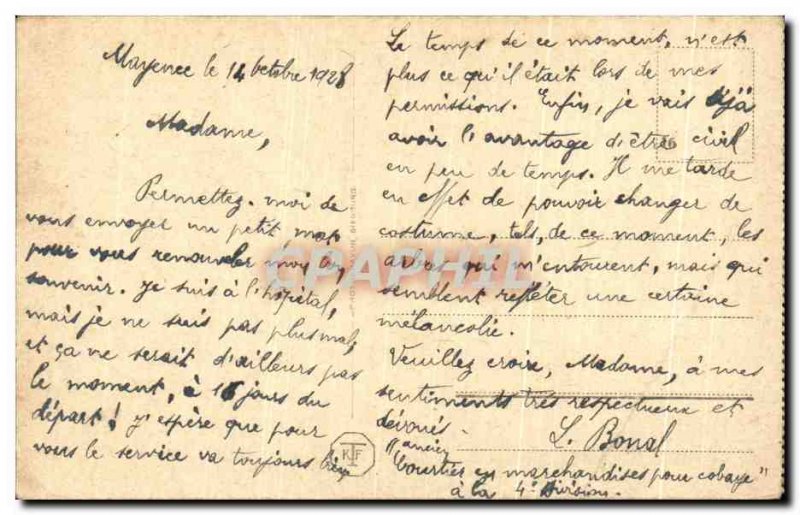 Mayence le 14 octobre 1928
Madame,
Permettez-moi de
vous envoyer un petit mot
pour vous renouveler mon bon
souvenir. Je suis à l'hôpital,
mais je ne suis pas plus mal,
et ça ne serait d'ailleurs pas
le moment, à 16 jours du
départ! J'espère que pour
vous le service va toujours bien
Le temps de ce moment, n'est
plus ce qu'il était lors de mes
permissions. Enfin, je vais déjà
avoir l'avantage d'être civil
en peu de temps. Il me tarde
en effet de pouvoir changer de
costume, tels, de ce moment, les
arbres qui m'entourent, mais qui
semblent refléter une certaine
mélancolie.
Veuillez croire, Madame, à mes
sentiments très respectueux et
dévoués.
L. Bonal
"ancien
Courtier en marchandises pour cobaye"
à la 4e Division.
KTF
CPAPHIL